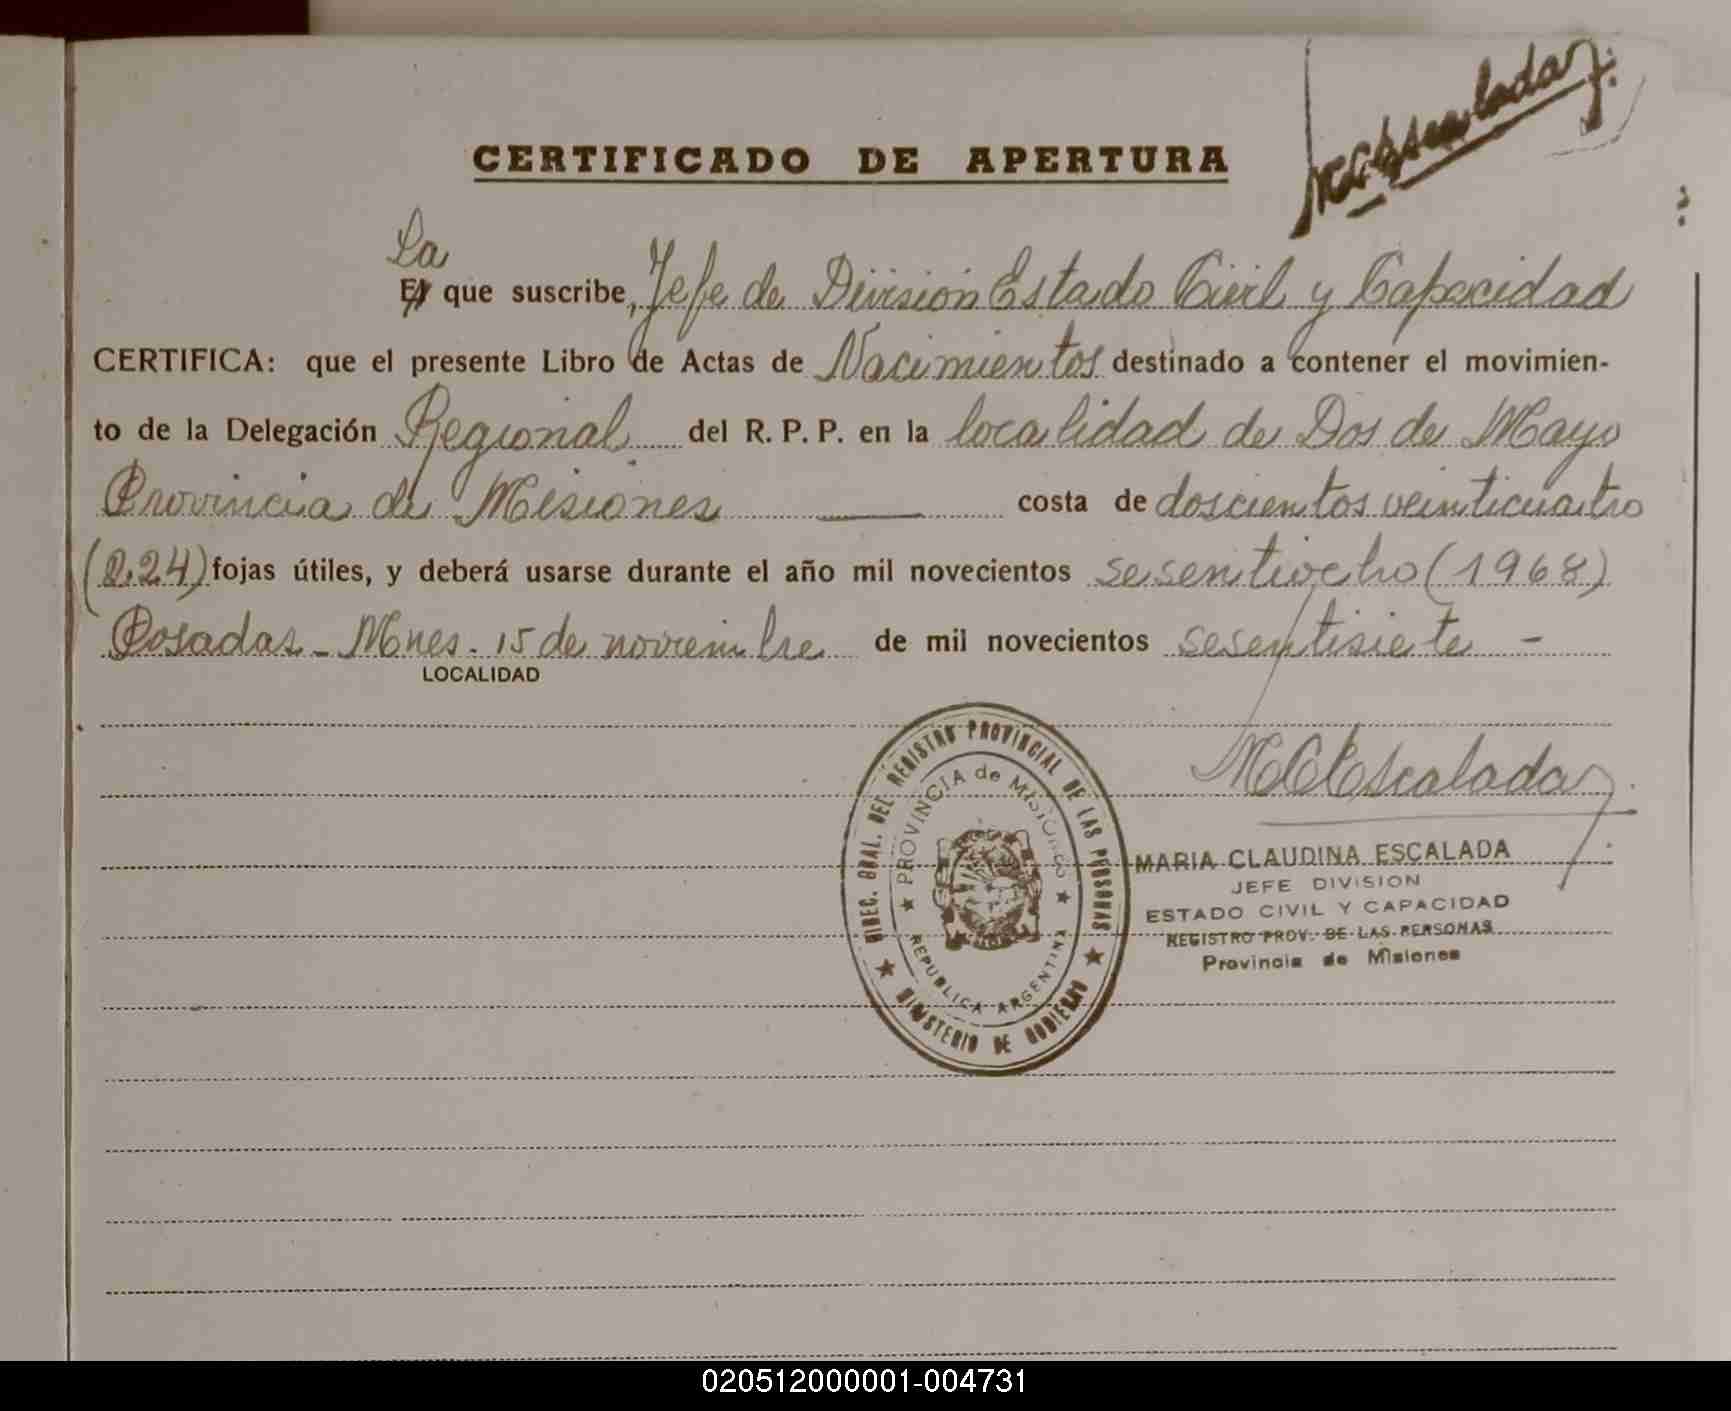 MCEscalada
CERTIFICADO DE APERTURA
La
El que suscribe, Jefe de División Estado Civil y Capacidad
CERTIFICA: que el presente Libro de Actas de Nacimientos destinado a contener el movimien-
to de la Delegación Regional del R. P. P. en la localidad de Dos de Mayo
Provincia de Misiones costa de doscientos veinticuatro
(224) fojas útiles, y deberá usarse durante el año mil novecientos sesentiocho (1968)
Posadas - Mnes. 15 de noviembre de mil novecientos sesentisiete -
LOCALIDAD
MCEscalada
DIREC. GRAL. DEL REGISTRO PROVINCIAL DE LAS PERSONAS
PROVINCIA de MISIONES
REPUBLICA ARGENTINA
MINISTERIO DE GOBIERNO
MARIA CLAUDINA ESCALADA
JEFE DIVISION
ESTADO CIVIL Y CAPACIDAD
REGISTRO PROV. DE LAS PERSONAS
Provincia de Misiones
020512000001-004731